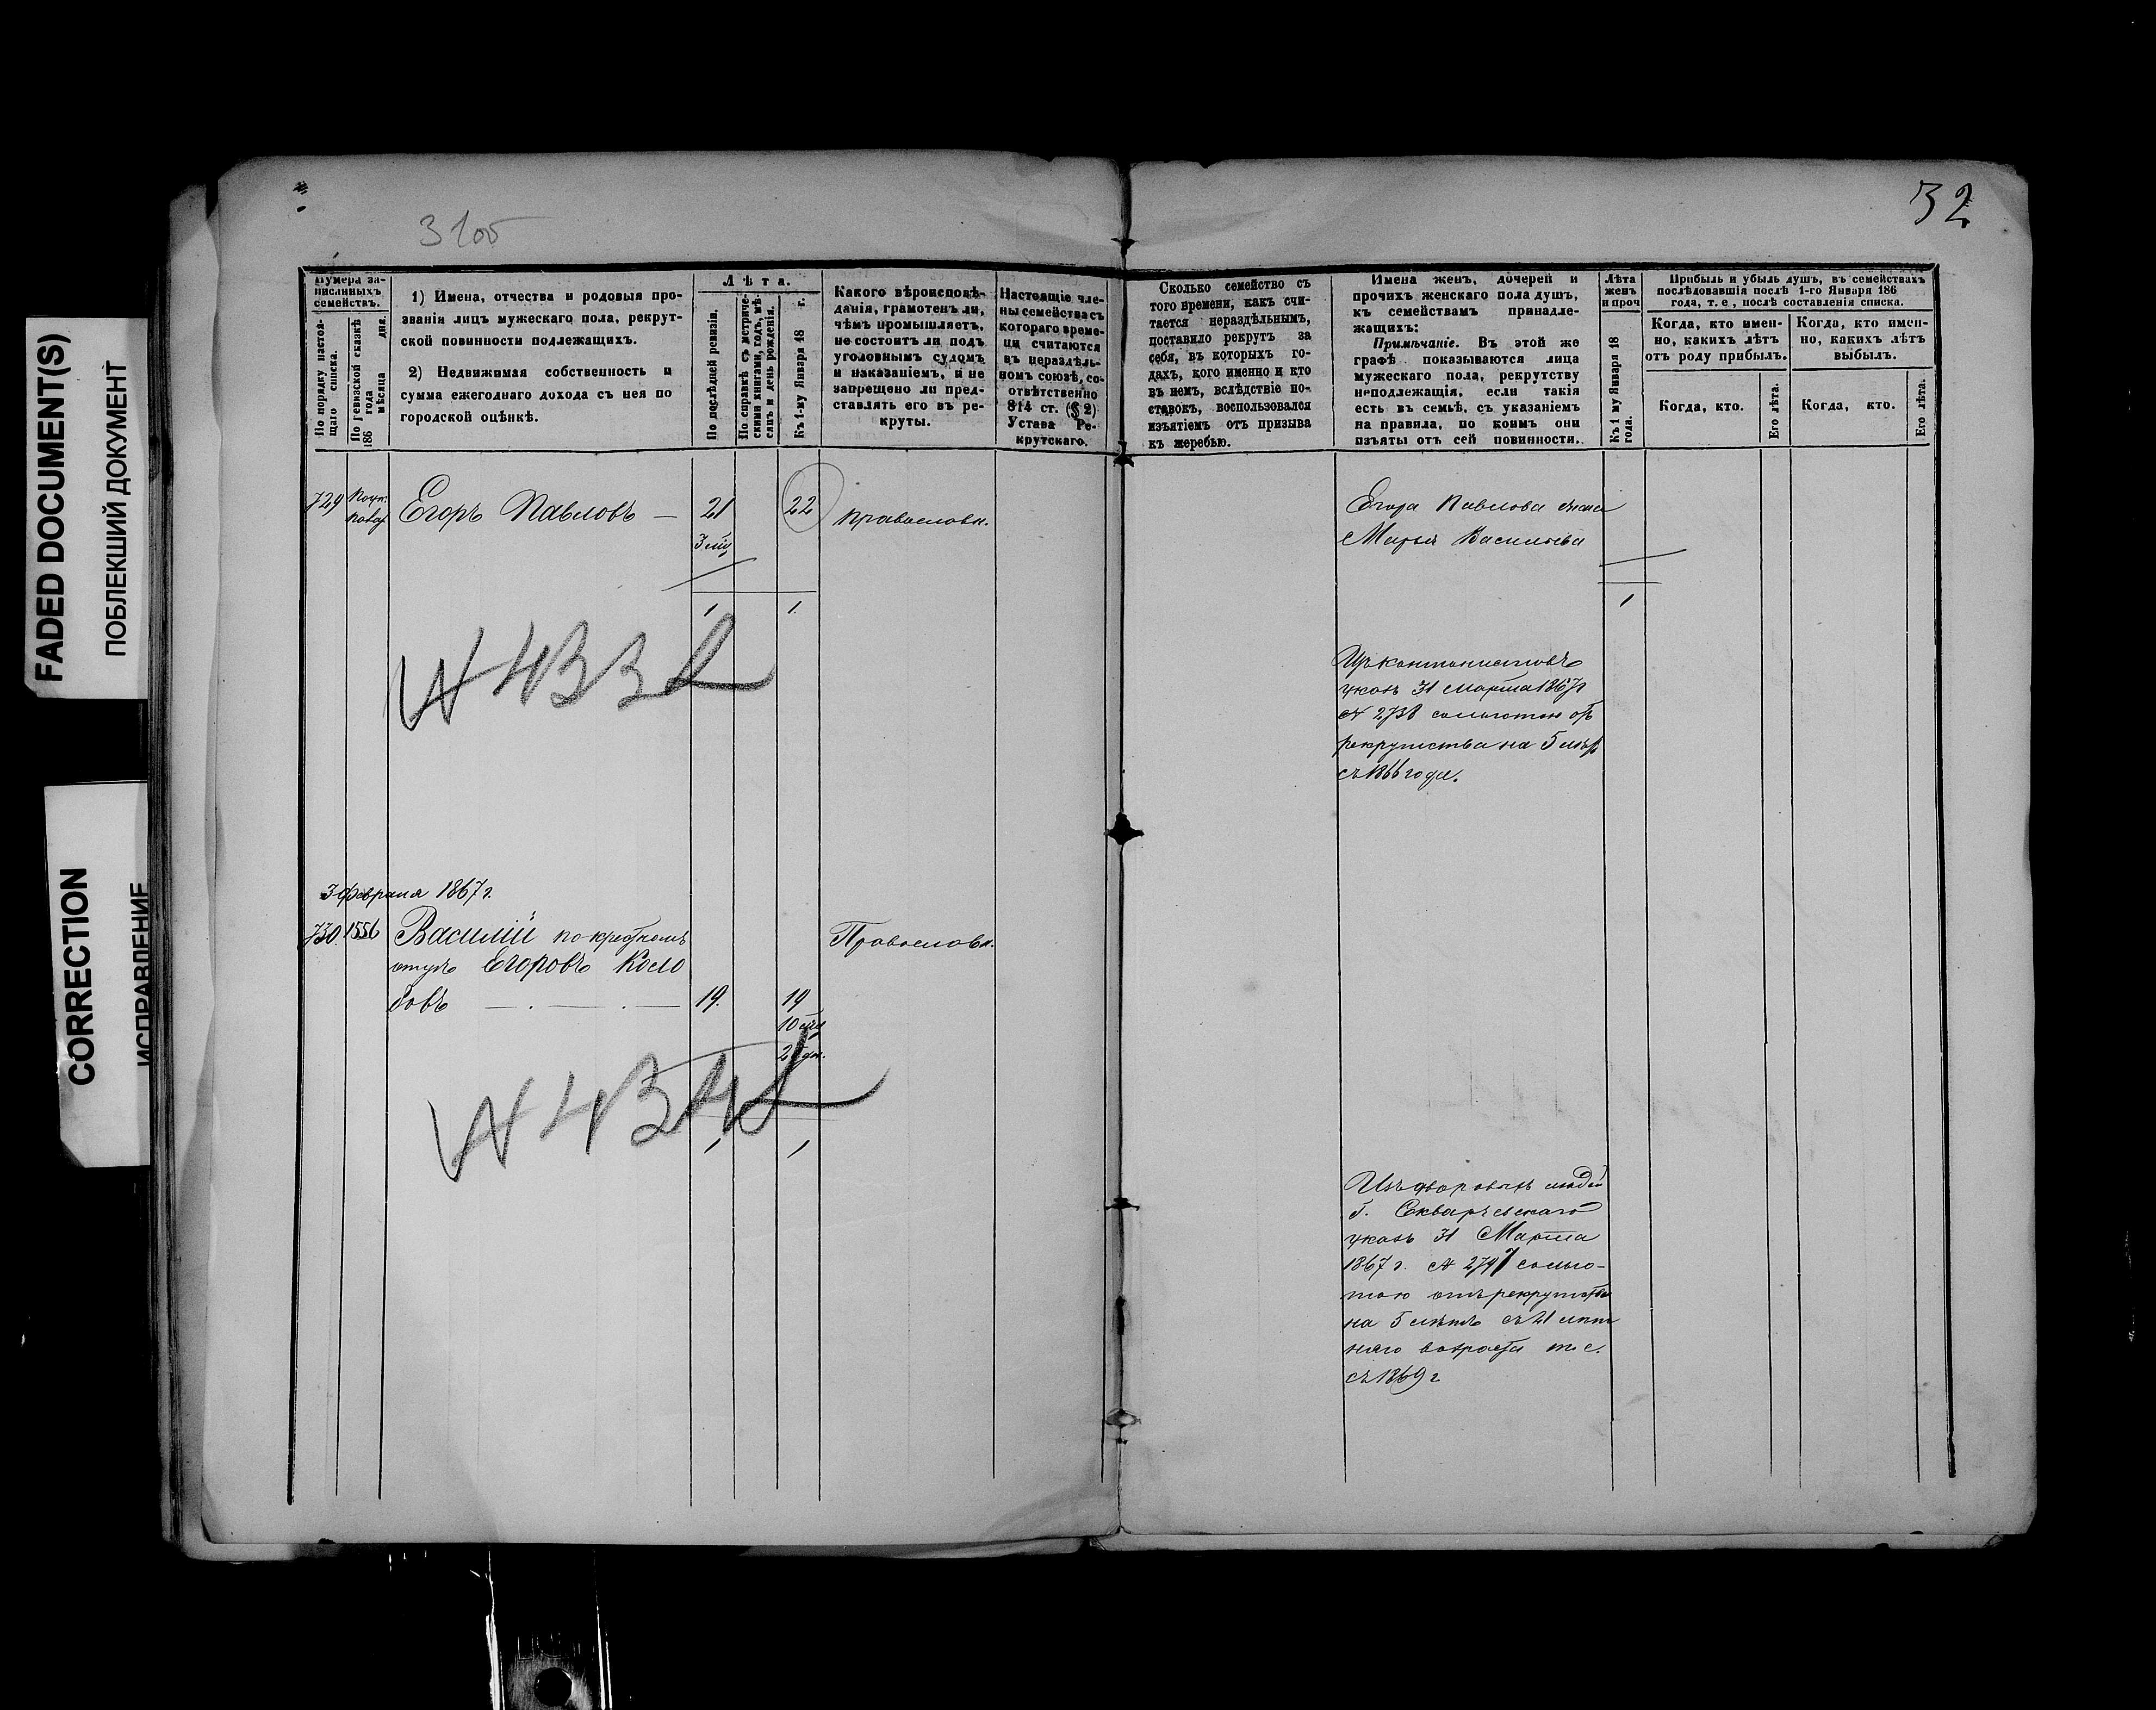 FADED DOCUMENT(S)
ПОБЛЕКШИЙ ДОКУМЕНТ
CORRECTION
ИСПРАВЛЕНИЕ
31об
32
Нумера за-
писанныхъ
семействъ.
По порядку настоя-
щаго списка.
По ревизской сказкѣ
186 года
мѣсяца дня.
1) Имена, отчества и родовыя про-
званія лицъ мужескаго пола, рекрут-
ской повинности подлежащихъ.
2) Недвижимая собственность и
сумма ежегоднаго дохода съ нея по
городской оцѣнкѣ.
Лѣта.
По послѣдней ревизіи.
По справкѣ съ метриче-
скими книгами, годъ, мѣ-
сяцъ и день рожденія.
Къ 1-му Января 18 г.
Какого вѣроисповѣ-
данія, грамотенъ ли,
чѣмъ промышляетъ,
не состоитъ ли подъ
уголовнымъ судомъ
и наказаніемъ, и не
запрещено ли пред-
ставлять его въ ре-
круты.
Настоящіе чле-
ны семейства съ
котораго време-
ни считаются
въ нераздѣль-
номъ союзѣ, со-
отвѣтственно
814 ст. (§ 2)
Устава Ре-
крутскаго.
Сколько семейство съ
того времени, какъ счи-
тается нераздѣльнымъ,
поставило рекрутъ за
себя, въ которыхъ го-
дахъ, кого именно и кто
въ немъ, вслѣдствіе по-
ставокъ, воспользовался
изъятіемъ отъ призыва
къ жеребью.
Имена женъ, дочерей и
прочихъ женскаго пола душъ,
къ семействамъ принадле-
жащихъ:
Примѣчаніе. Въ этой же
графѣ показываются лица
мужескаго пола, рекрутству
неподлежащія, если такія
есть въ семьѣ, съ указаніемъ
на правила, по коимъ они
изъяты отъ сей повинности.
Лѣта
женъ
и проч
Къ 1 му Января 18
года.
Прибыль и убыль душъ, въ семействахъ
послѣдовавшія послѣ 1-го Января 186
года, т. е., послѣ составленія списка.
Когда, кто имен-
но, какихъ лѣтъ
отъ роду прибылъ.
Когда, кто имен-
но, какихъ лѣтъ
выбылъ.
Когда, кто.
Его лѣта.
Когда, кто.
Его лѣта.
729
Егоръ Павловъ — 21 22 православн.
1 1.
N 433
Егора Павлова жена
Марья Васильева
1
Изъ кантонистовъ
указъ 31 Марта 1867г
N 2738 сольготою отъ
рекрутства на 5 лѣтъ
съ 1866 года.
3 Февраля 1867 г.
730. 1556 Василій по крестному Православн.
отцу Егоровъ Коло
бовъ — 19. 19
10 мц
1 1
Изъ дворовыхъ людей
г.
указъ 31 Марта
1867 г. N сольго-
тою отъ рекрутства
на 5 лѣтъ съ 21 лѣт
няго возраста т. е.
съ 1869 г